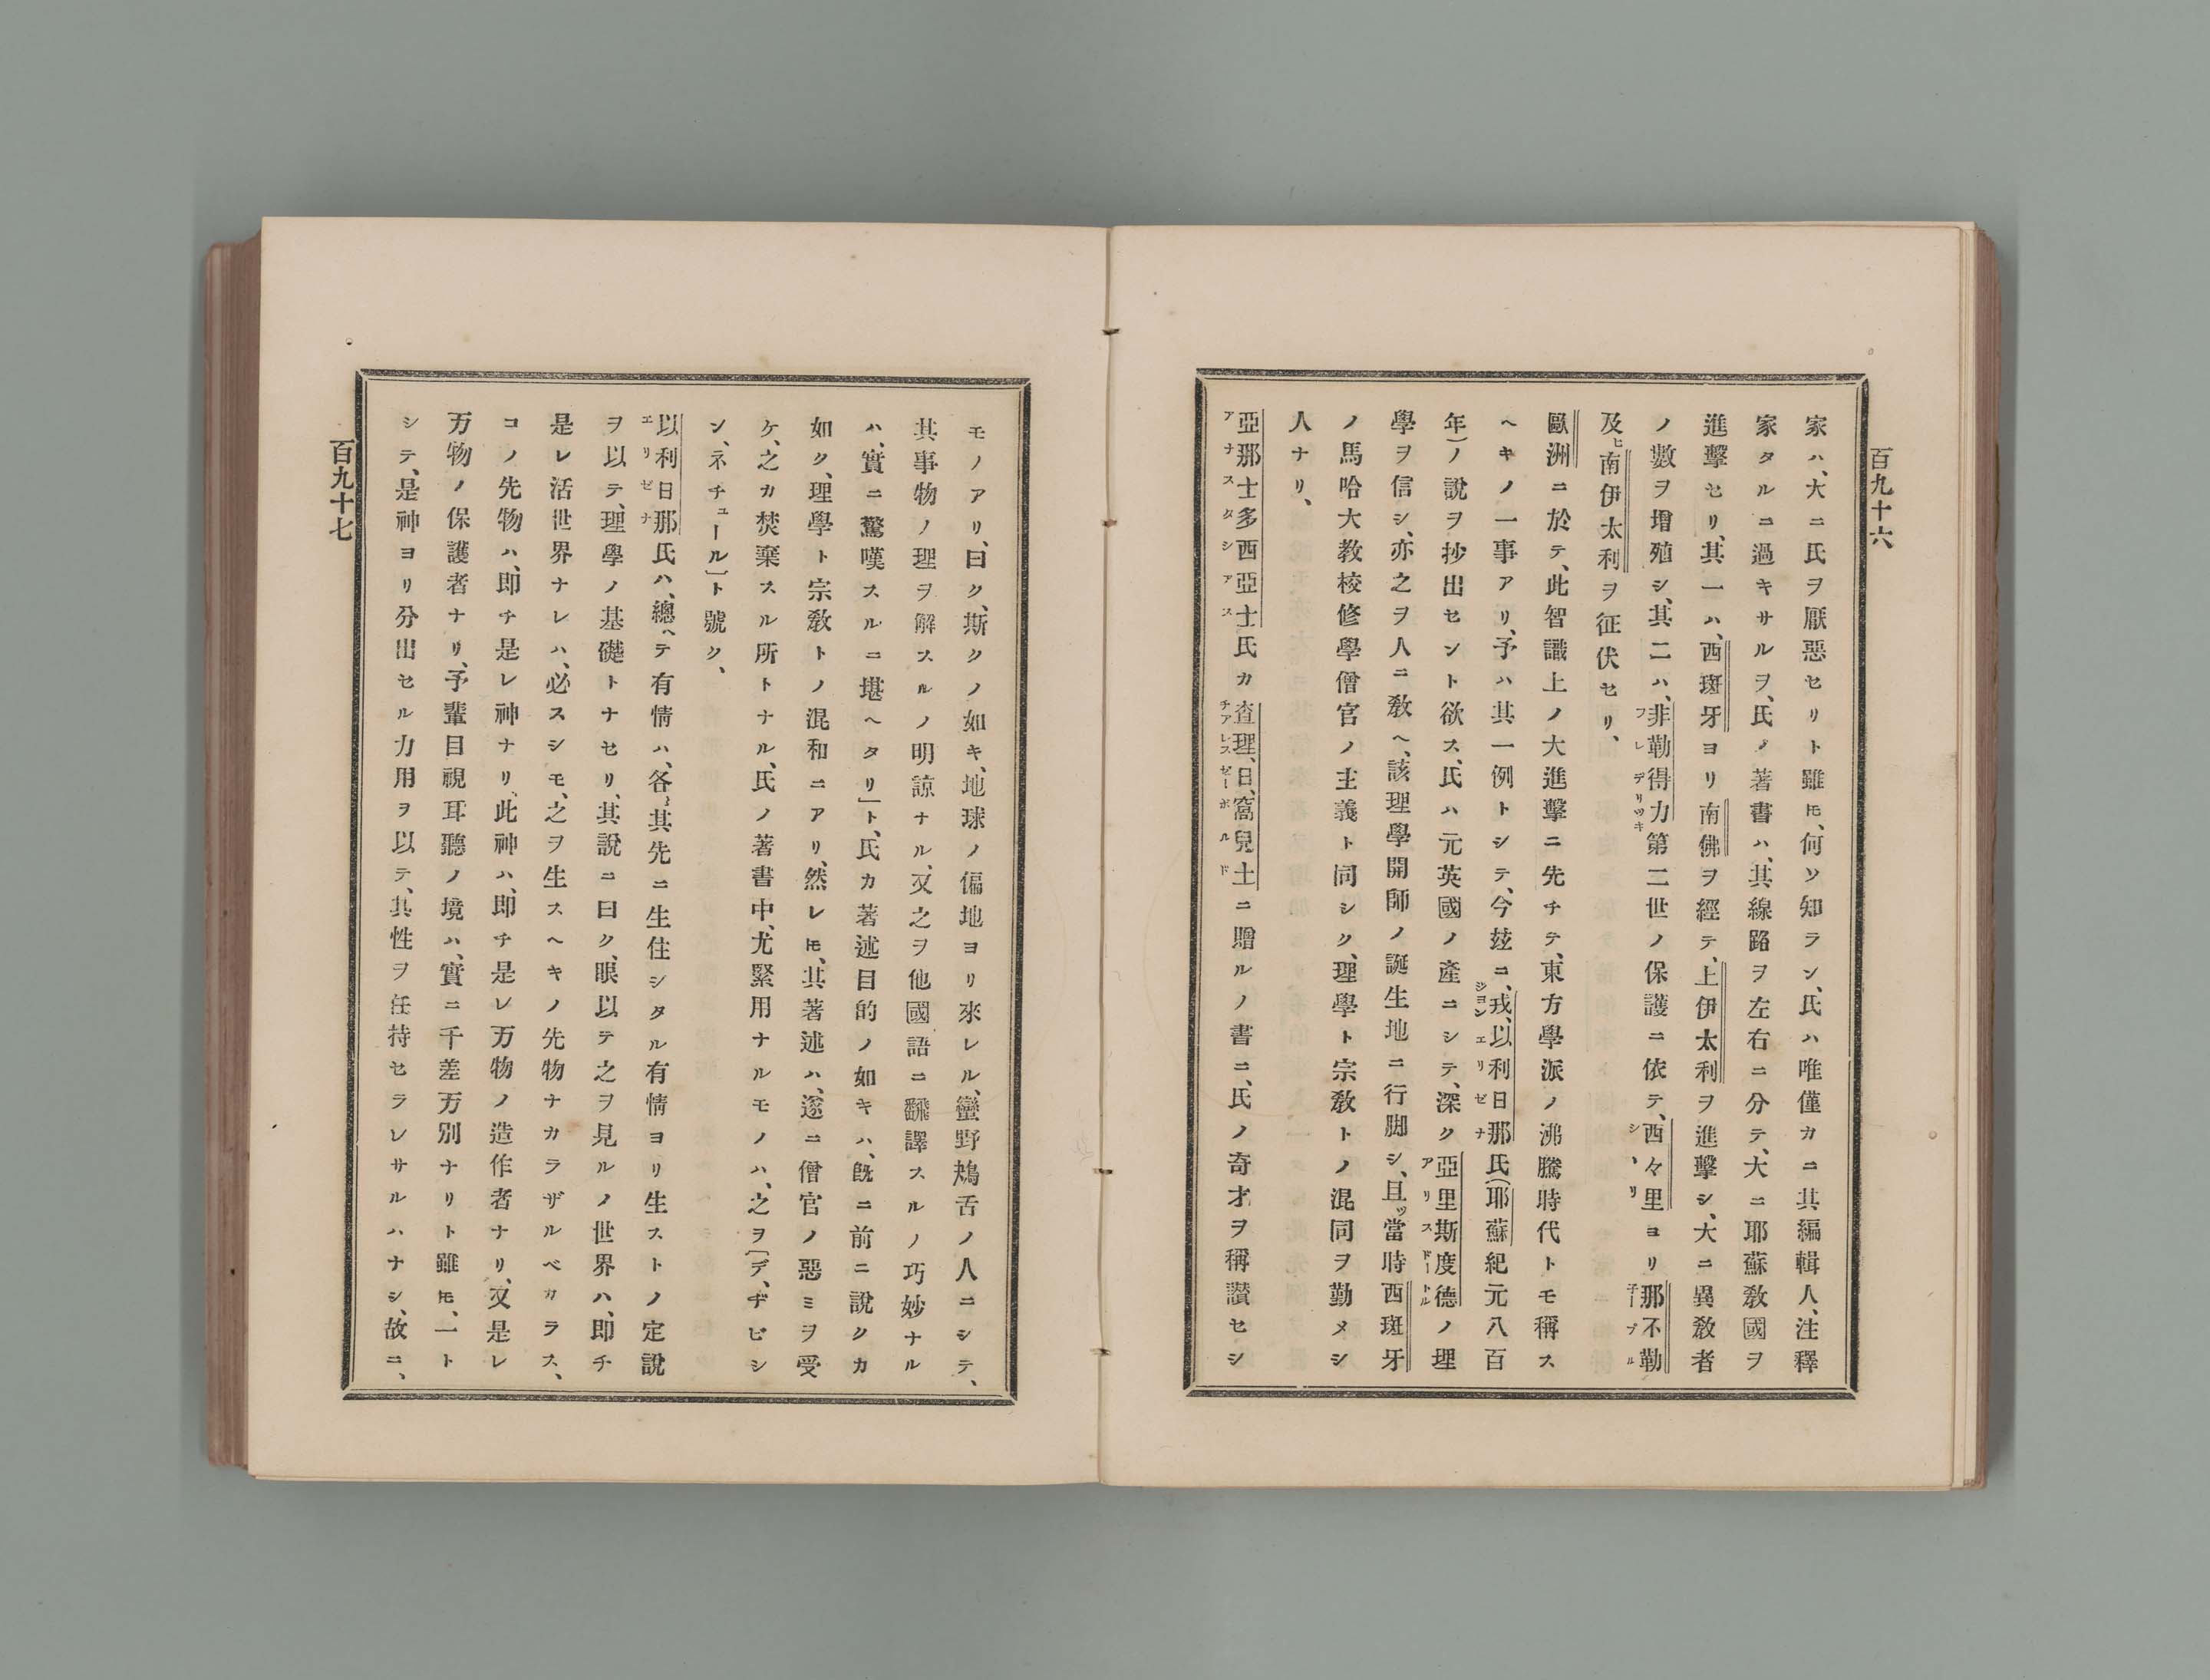 百九十六
家ハ、大ニ氏ヲ厭惡セリト雖𪜈、何ソ知ラン、氏ハ唯僅カニ其編輯人、注釋
家タルニ過キサルヲ、氏ノ著書ハ、其線路ヲ左右ニ分テ、大ニ耶蘇敎國ヲ
進擊セリ、其一ハ、西班牙ヨリ南佛ヲ經テ、上伊太利ヲ進擊シ、大ニ異敎者
ノ數ヲ增殖シ、其二ハ、非勒得力第二世ノ保護ニ依テ、西々里ヨリ那不勒
フレデリッキ
シヽリ
子ープル
及ヒ南伊太利ヲ征伏セリ、
歐洲ニ於テ、此智識上ノ大進擊ニ先チテ、東方學派ノ沸騰時代トモ稱ス
ヘキノ一事アリ、予ハ其一例トシテ、今玆ニ、戎、以利日那氏(耶蘇紀元八百
ション
エリゼナ
年)ノ說ヲ抄出セント欲ス、氏ハ元英國ノ產ニシテ、深ク亞里斯度德ノ理
アリスドートル
學ヲ信シ、亦之ヲ人ニ敎ヘ、該理學開師ノ誕生地ニ行脚シ、且ッ當時西班牙
ノ馬哈大教校修學僧官ノ主義ト同シク、理學ト宗敎トノ混同ヲ勤メシ
人ナリ、
亞那士多西亞士氏カ査理、日、窩兒土ニ贈ルノ書ニ、氏ノ奇才ヲ稱讃セシ
アナスタシアス
チアレスゼーボルド
モノアリ、曰ク、斯クノ如キ、地球ノ偏地ヨリ來レル、蠻野鴂舌ノ人ニシテ、
其事物ノ理ヲ解スルノ明諒ナル、又之ヲ他國語ニ飜譯スルノ巧妙ナル
ハ、實ニ驚嘆スルニ堪ヘタリ」ト、氏カ著述目的ノ如キハ、旣ニ前ニ說クカ
如ク、理學ト宗敎トノ混和ニアリ、然レ𪜈、其著述ハ、遂ニ僧官ノ惡ミヲ受
ケ、之カ焚棄スル所トナル、氏ノ著書中、尤緊用ナルモノハ、之ヲ「デ、ヂビシ
ン、ネチュール」ト號ク、
以利日那氏ハ、總ヘテ有情ハ、各〻其先ニ生住シタル有情ヨリ生ストノ定說
エリゼナ
ヲ以テ、理學ノ基礎トナセリ、其說ニ曰ク、眼以テ之ヲ見ルノ世界ハ、即チ
是レ活世界ナレハ、必スシモ、之ヲ生スヘキノ先物ナカラザルベカラス、
コノ先物ハ、即チ是レ神ナリ、此神ハ、即チ是レ万物ノ造作者ナリ、又是レ
万物ノ保護者ナリ、予輩目視耳聽ノ境ハ、實ニ千差万別ナリト雖𪜈、一ト
シテ、是神ヨリ分出セル力用ヲ以テ、其性ヲ任持セラレサルハナシ、故ニ、
百九十七